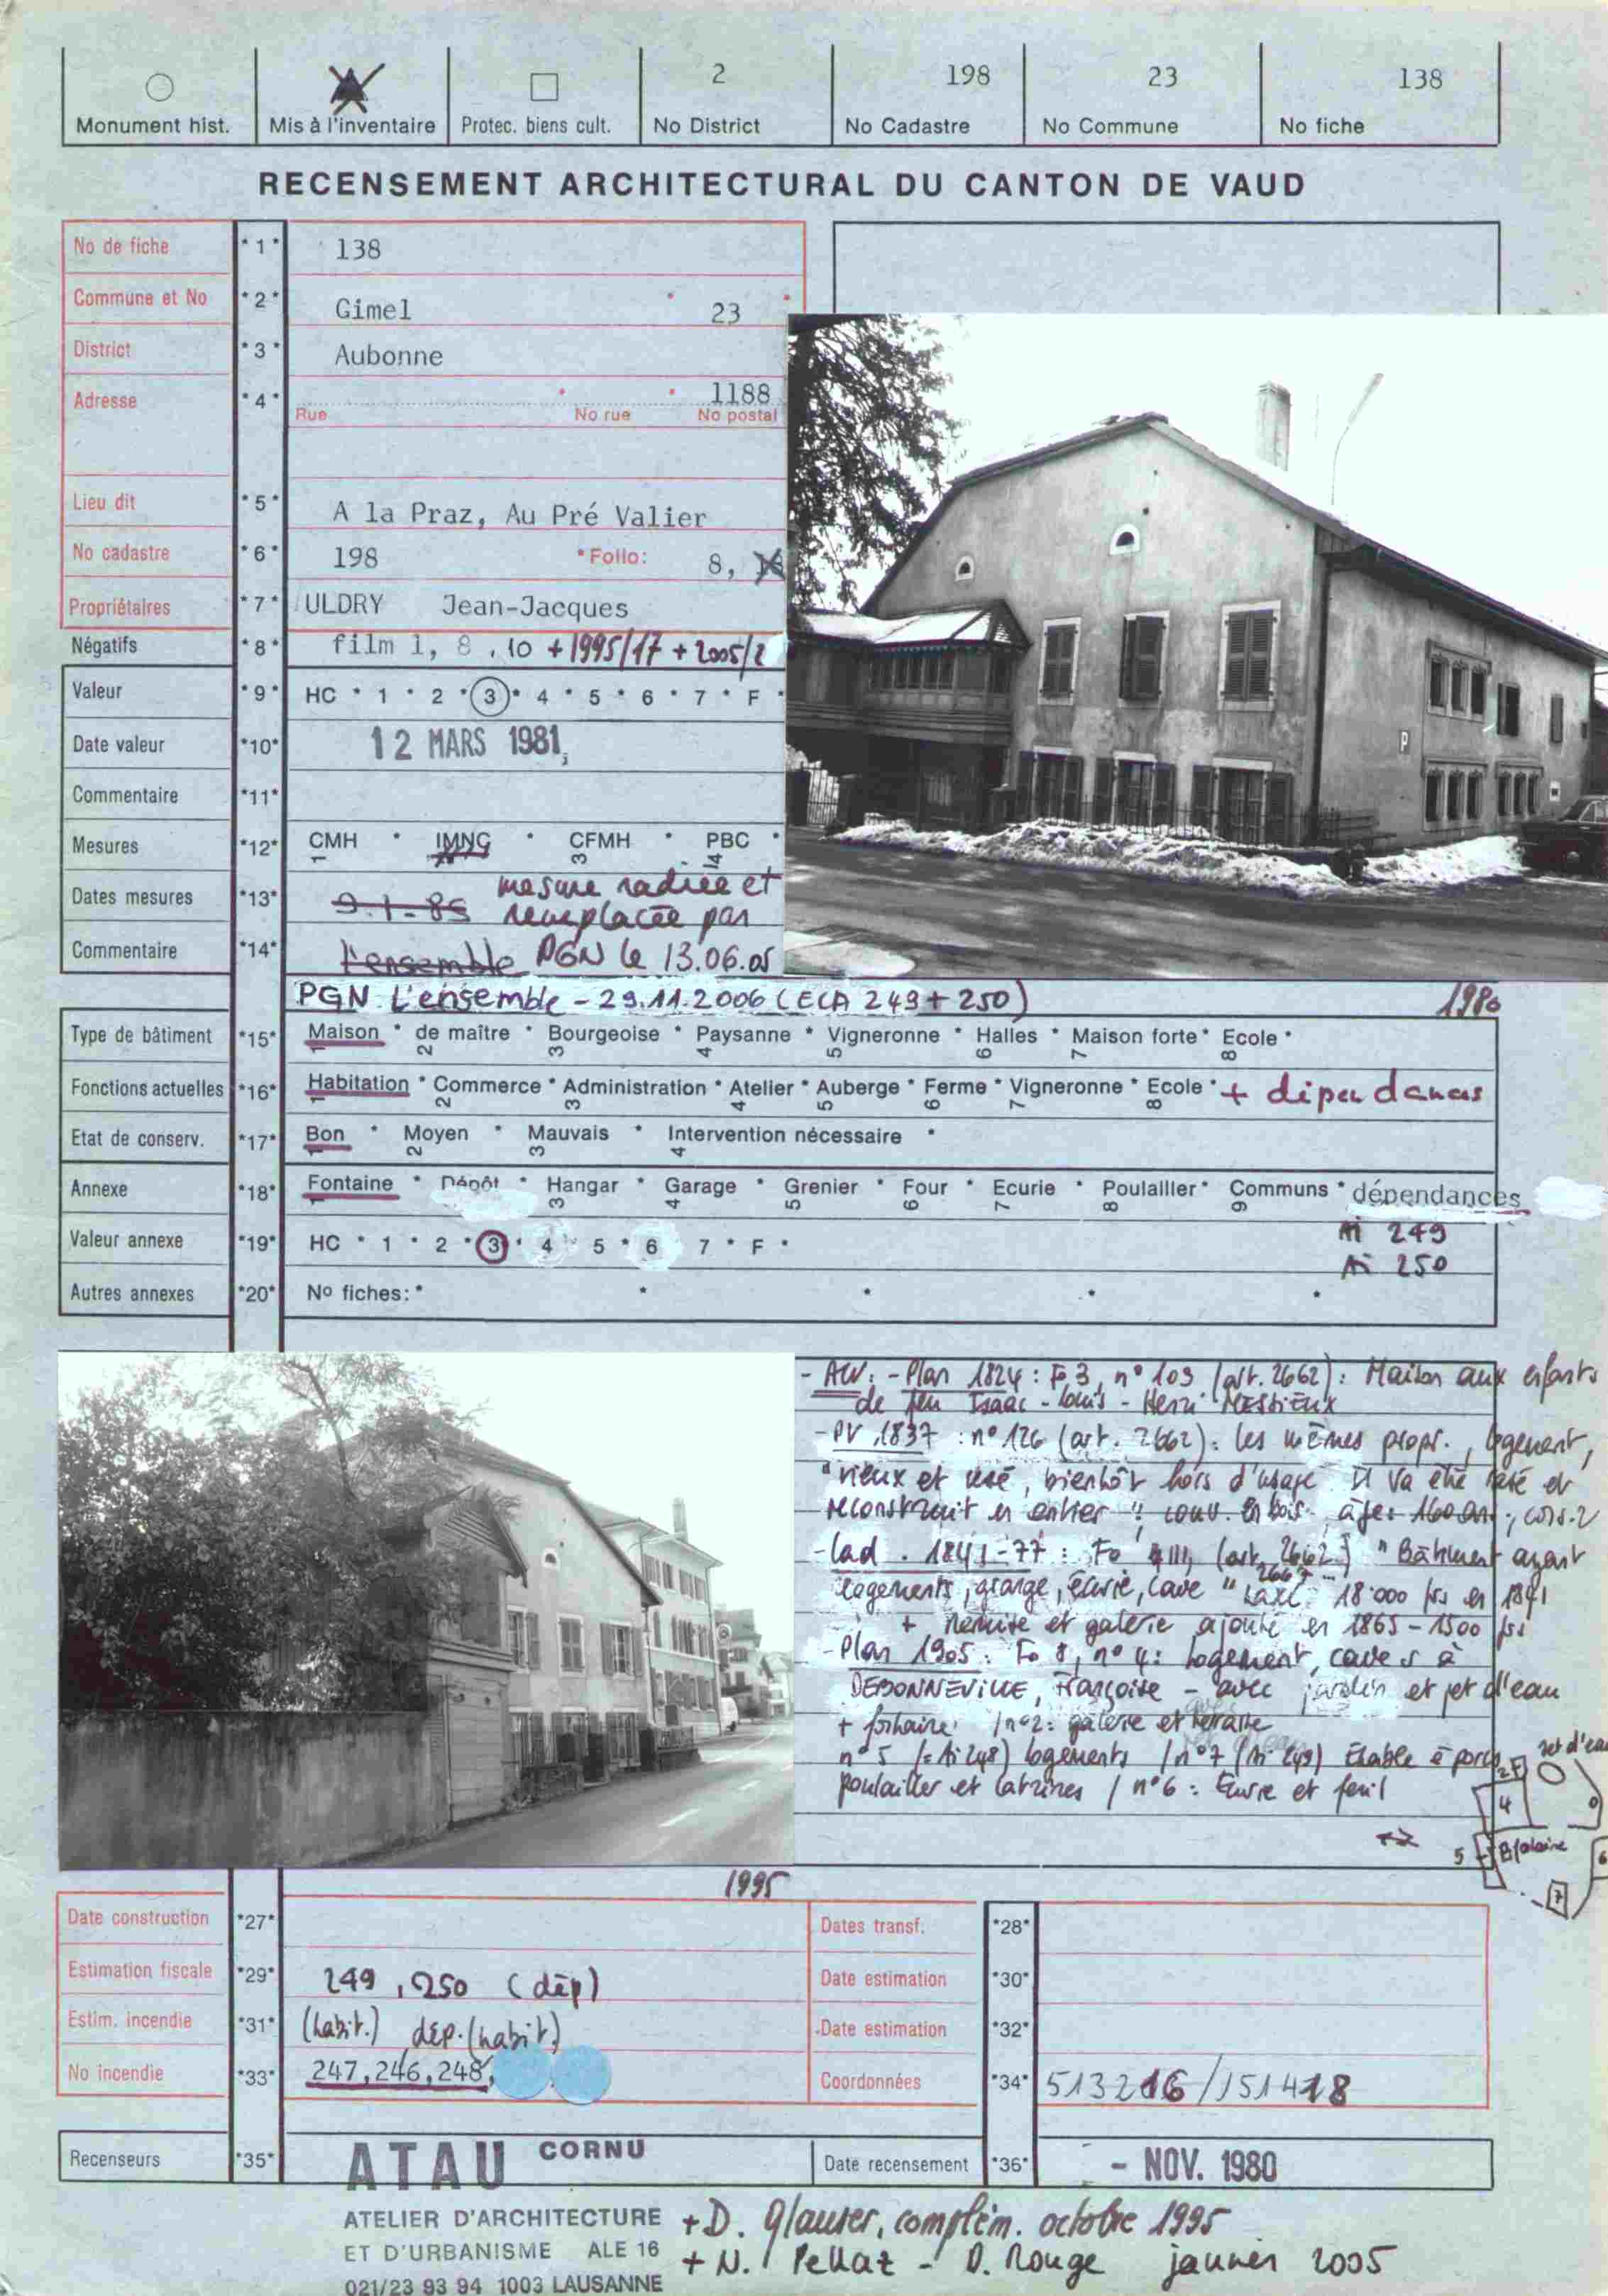 2 198 23 138
Monument hist. Mis à l'inventaire Protec. biens cult. No District No Cadastre No Commune No fiche
RECENSEMENT ARCHITECTURAL DU CANTON DE VAUD
No de fiche *1* 138
Commune et No *2* Gimel 23
District *3* Aubonne
Adresse *4* 1188
Rue No rue No postal
Lieu dit *5* A la Praz, Au Pré Valier
No cadastre *6* 198 *Folio: 8,
Propriétaires *7* ULDRY Jean-Jacques
Négatifs *8* film 1, 8, 10 + 1995/17 + 2005/2
Valeur *9* HC * 1 * 2 * 3 * 4 * 5 * 6 * 7 * F *
Date valeur *10* 12 MARS 1981
Commentaire *11*
P
Mesures *12* CMH * IMNG * CFMH * PBC *
1 3 14
Dates mesures *13* 9.1.85 mesure radiée et
remplacée par
Commentaire *14* l'ensemble PGN le 13.06.05
PGN L'ensemble - 29.11.2006 (ECA 249 + 250) 1980
Type de bâtiment *15* Maison * de maître * Bourgeoise * Paysanne * Vigneronne * Halles * Maison forte * Ecole *
1 2 3 4 5 6 7 8
Fonctions actuelles *16* Habitation * Commerce * Administration * Atelier * Auberge * Ferme * Vigneronne * Ecole * + dépendances
1 2 3 4 5 6 7 8
Etat de conserv. *17* Bon * Moyen * Mauvais * Intervention nécessaire *
1 2 3 4
Annexe *18* Fontaine * Dépôt * Hangar * Garage * Grenier * Four * Ecurie * Poulailler * Communs * dépendances
1 3 4 5 6 7 8 9
Valeur annexe *19* HC * 1 * 2 * 3 * 4 * 5 * 6 7 * F * Ai 249
Ai 250
Autres annexes *20* No fiches: * * * * *
- ACV: - Plan 1824: Fo 3, n° 103 (art. 2662): Maison aux enfants
de feu Isaac-Louis-Henri MESSIEUX
- PV 1837: n° 126 (art. 2662): les mêmes propr., logement,
"vieux et usé, bientôt hors d'usage. Il va être rasé et
reconstruit en entier" couv. en bois, âge: 160 ans,
- Cad. 1841-77: Fo (art. 2662) "Bâtiment ayant
2667
logements, grange, écurie, cave" taxé: 18'000 frs en 1841
+ remise et galerie ajouté en 1865 - 1500 frs
- Plan 1905: Fo 8, n° 4: logement, caves à
DEBONNEVILLE, Françoise - avec jardin et jet d'eau
+ fontaine / n° 2: galerie et
n° 5 (= Ai 248) logements / n° 7 (Ai 249) Etable à porcs,
poulailler et latrines / n° 6: Ecurie et fenil
jet d'eau
2
4
5 6
7
1995
Date construction *27* Dates transf. *28*
Estimation fiscale *29* 249, 250 (dép) Date estimation *30*
Estim. incendie *31* (habit.) dép. (habit.) Date estimation *32*
No incendie *33* 247,246,248, Coordonnées *34* 513216/151418
Recenseurs *35* ATAU CORNU Date recensement *36* - NOV. 1980
ATELIER D'ARCHITECTURE + D. Glauser, complém. octobre 1995
ET D'URBANISME ALE 16 + N. Pellaz - D. Rouge janvier 2005
021/23 93 94 1003 LAUSANNE